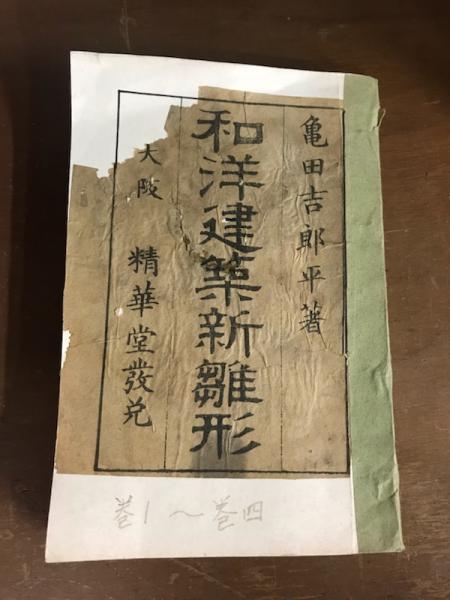 亀田吉郎平著
和洋建築新雛形
大阪 精華堂發兌
巻1〜巻四